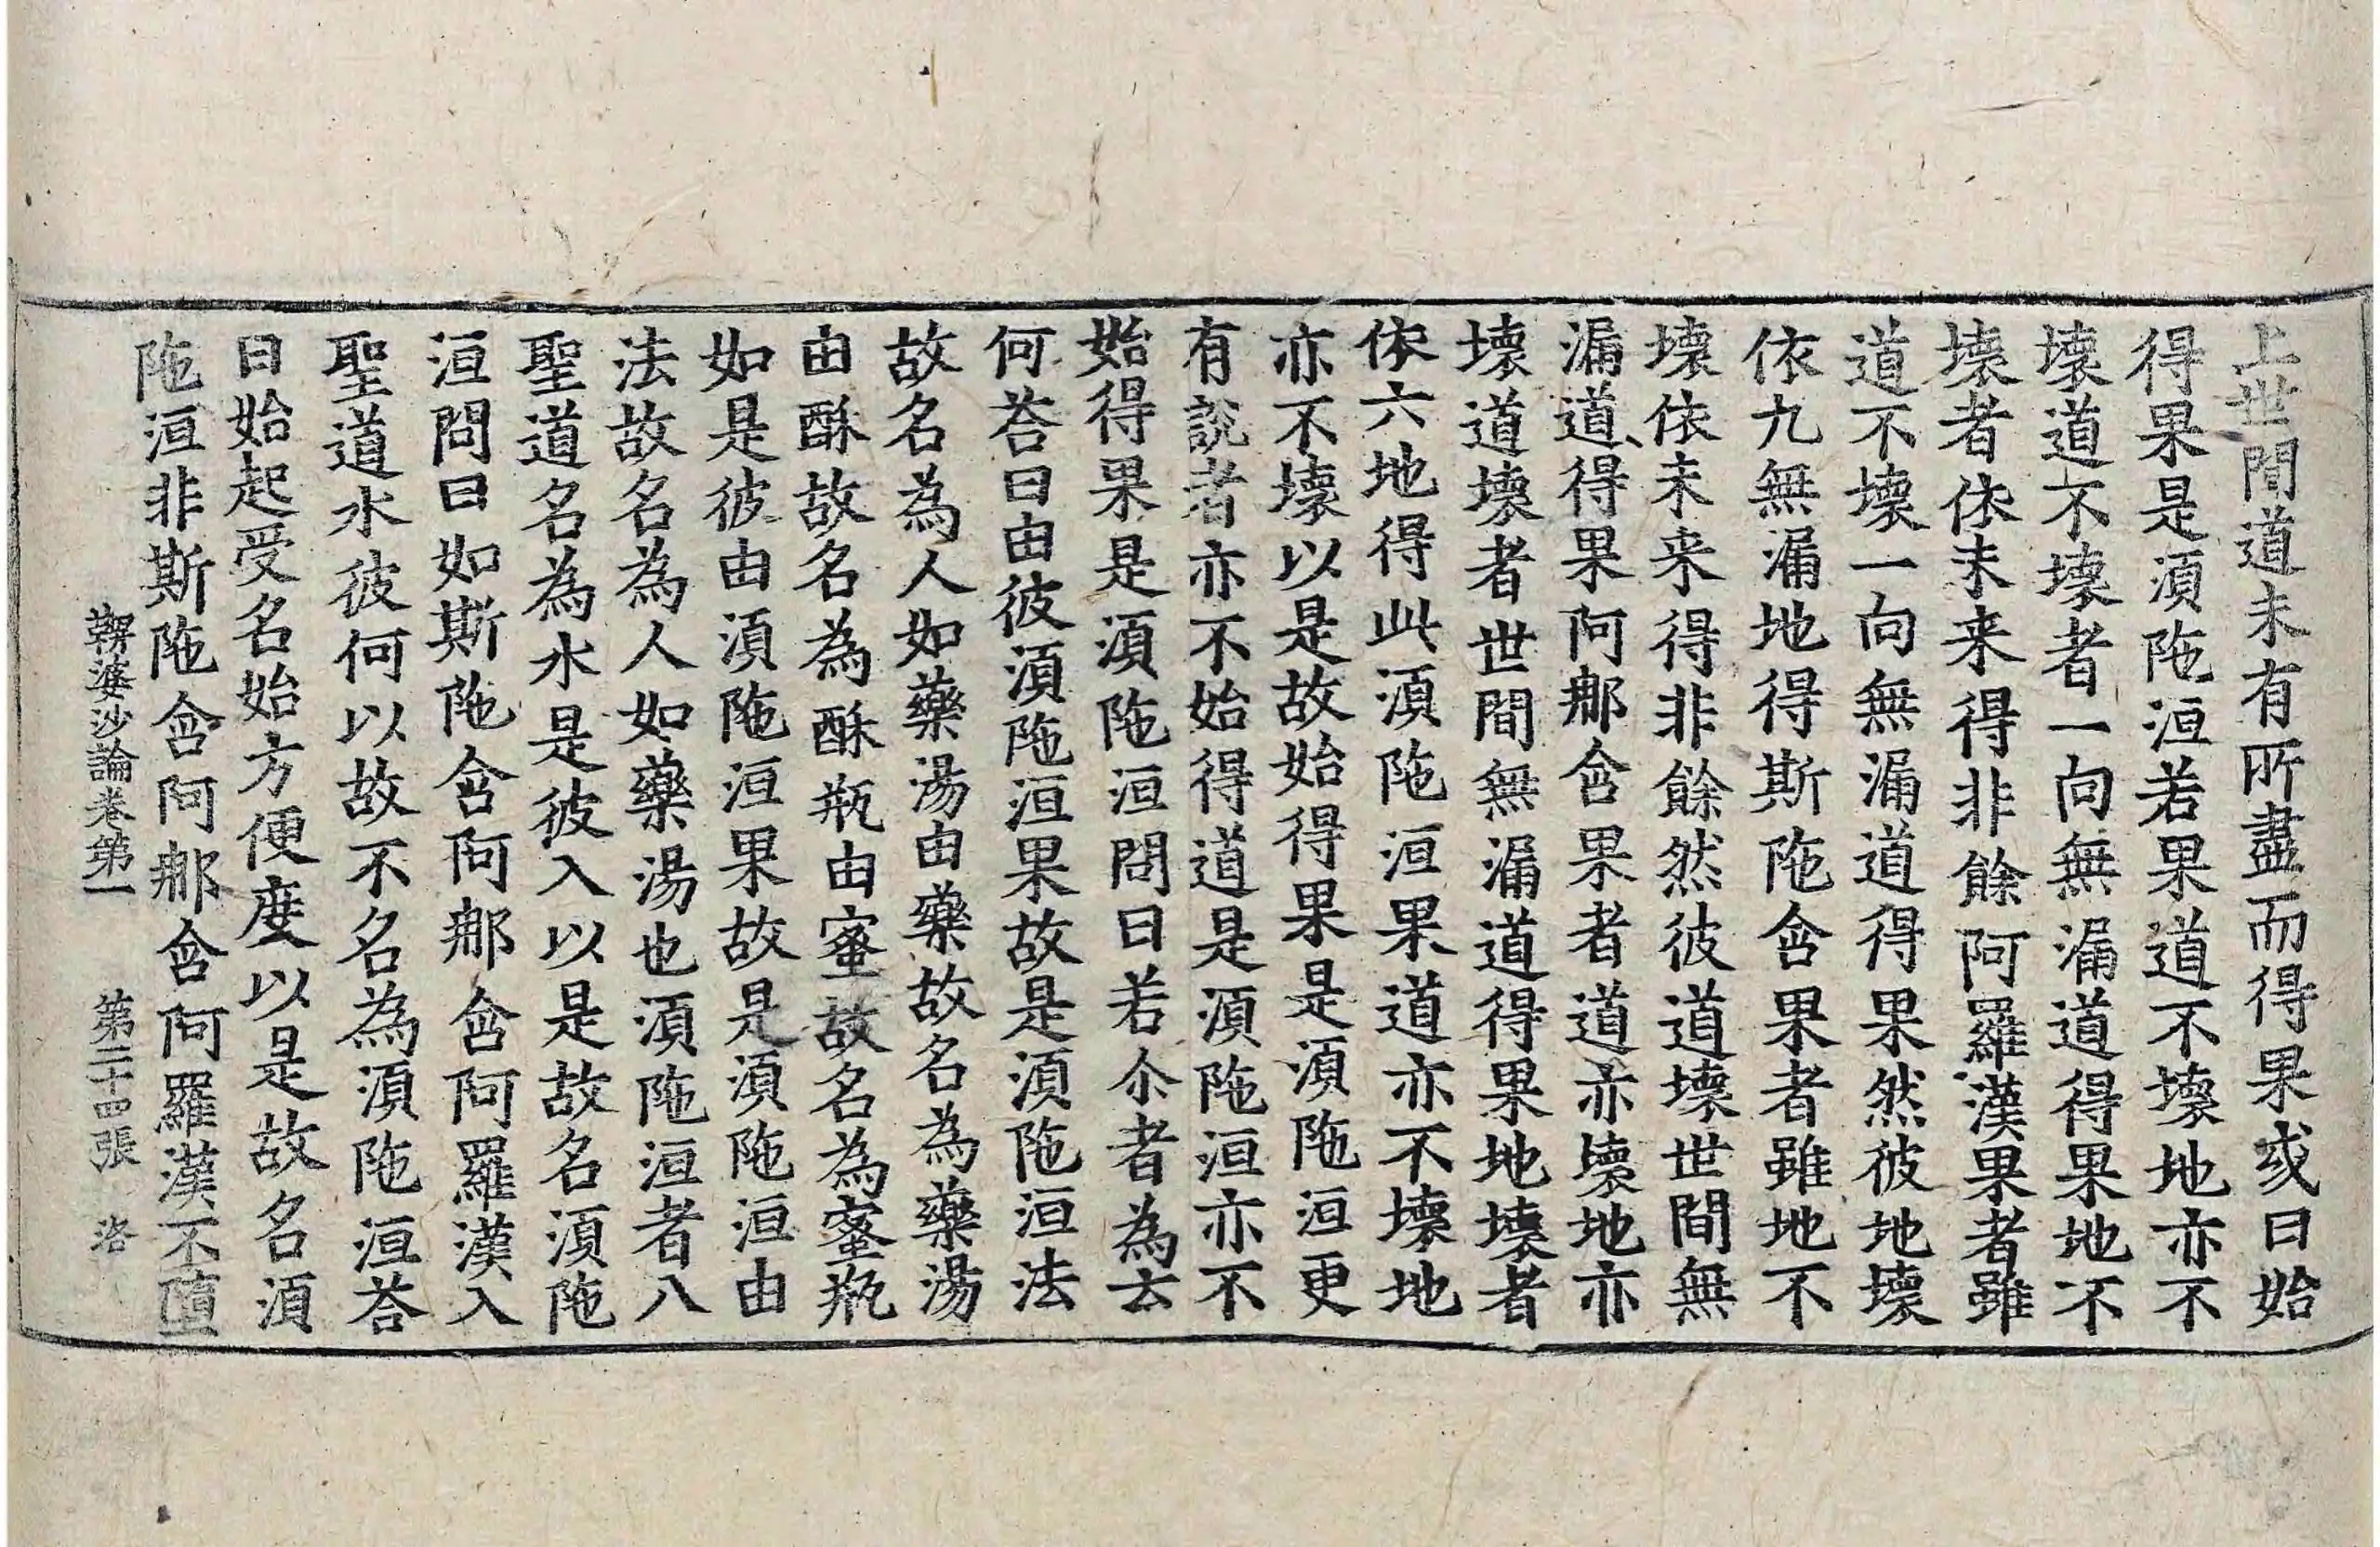 上世間道未有所盡而得果或曰始
得果是湏陁洹若果道不壞地亦不
壞道不壞者一向無漏道得果地不
壞者依未来得非餘阿羅漢果者雖
道不壞一向無漏道得果然彼地壞
依九無漏地得斯陁含果者雖地不
壞依未来得非餘然彼道壞世間無
漏道得果阿那含果者道亦壞地亦
壞道壞者世間無漏道得果地壞者
依六地得此湏陁洹果道亦不壞地
亦不壞以是故始得果是湏陁洹更
有說者亦不始得道是湏陁洹亦不
始得果是湏陁洹問曰若尒者為云
何荅曰由彼湏陁洹果故是湏陁洹法
故名為人如藥湯由藥故名為藥湯
由酥故名為酥瓶由蜜故名為蜜瓶
如是彼由湏陁洹果故是湏陁洹由
法故名為人如藥湯也湏陁洹者八
聖道名為水是彼入以是故名湏陁
洹問曰如斯陁含阿那含阿羅漢入
聖道水彼何以故不名為湏陁洹荅
曰始起受名始方便度以是故名湏
陁洹非斯陁含阿那含阿羅漢不墮
鞞婆沙論卷第一　第二十四張　洛